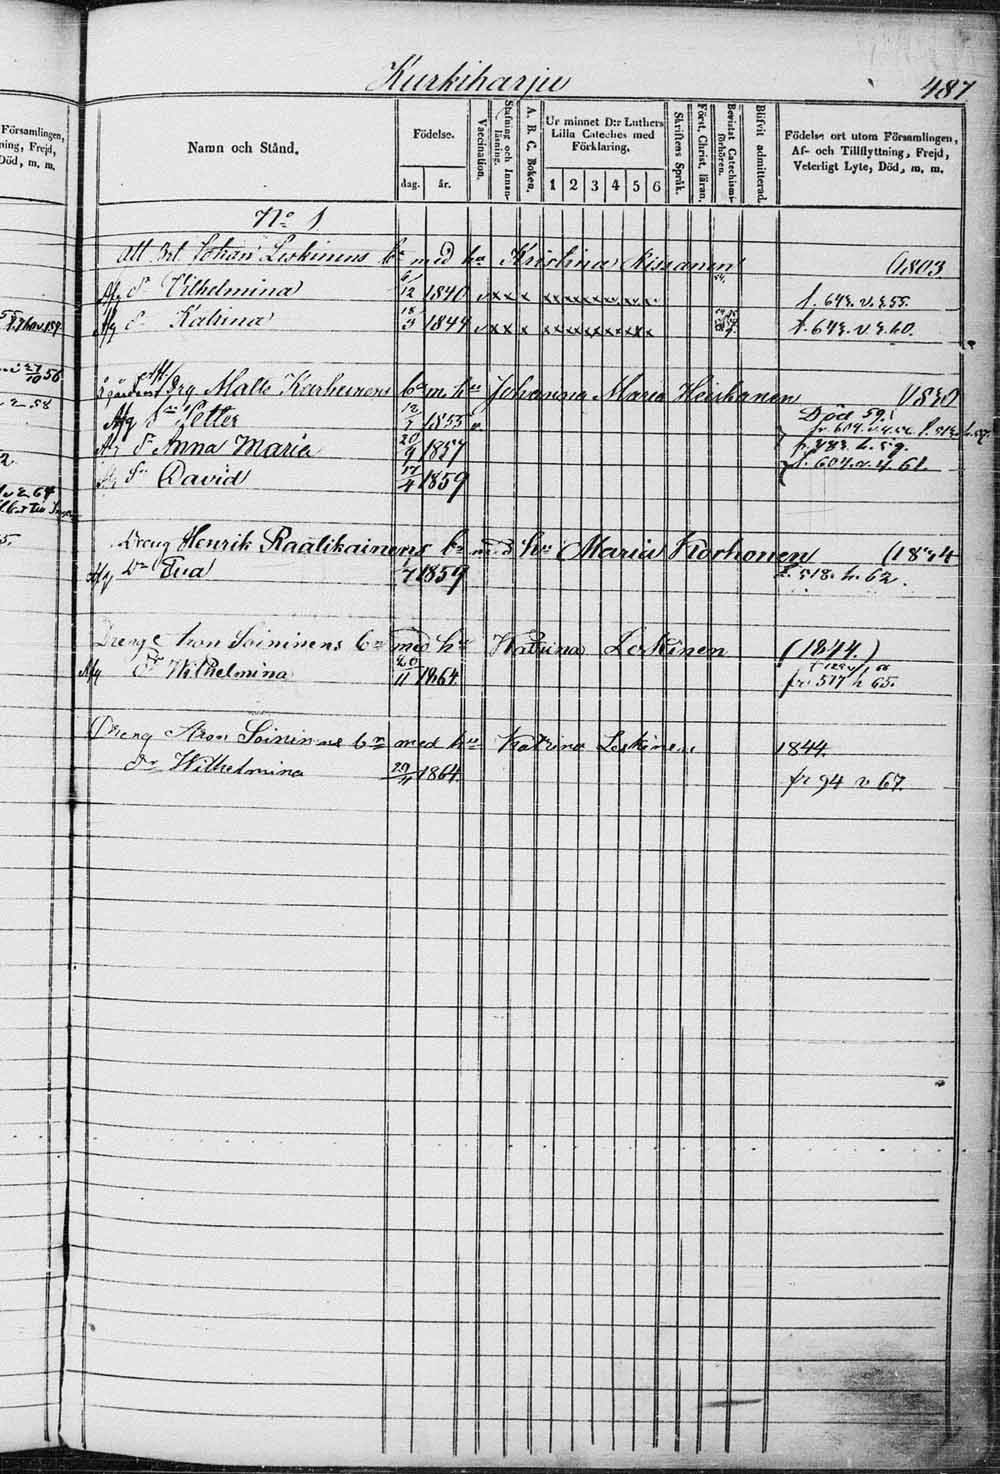 Kurkiharju 487
Namn och Stånd.
Födelse.
dag. år.
Vaccination.
Stafning och Innanläsning.
A. B. C. Boken.
Ur minnet D:r Luthers Lilla Cateches med Förklaring.
1 2 3 4 5 6
Skriftens Språk.
Först. Christ. läran.
Bevistat Catechismiförhören.
Blifvit admitterad.
Födelse ort utom Församlingen, Af- och Tillflyttning, Frejd, Veterligt Lyte, Död, m. m.
N:o 1
Johan Leskinens bn med hu Kristina Nissanen (1803
Afg dr Wilhelmina 12 1840 v x x x x x x x x x f. 643. v. 355.
Afg dr Katrina 18/3 1844 v x x x x x x x x x f. 643. v. 3. 60.
Drg Matts Karhunens bn m. hu Johanna Maria Heiskanen 1830
Afg Sn Petter 12 1855 v. Död 59.
Afg dr Anna Maria 20/9 1857 fr. 383. h. 59.
Afg Sn David 17/4 1859 f. 604. v. 4. 61.
Dreng Henrik Raatikainens bn med hu Maria Korhonen (1834
Afg Dr Eva 7 1859 f. 518. h. 62.
Drenge Aron Soininens bn med hu Katrina Leskinen (1844.)
Afg dr Wilhelmina 20/11 1864 fr. 517 h 65.
Dreng Aron Soininens bn med hu Katrina Leskinen 1844.
dr Wilhelmina 20/11 1864. fr 94 v 67.